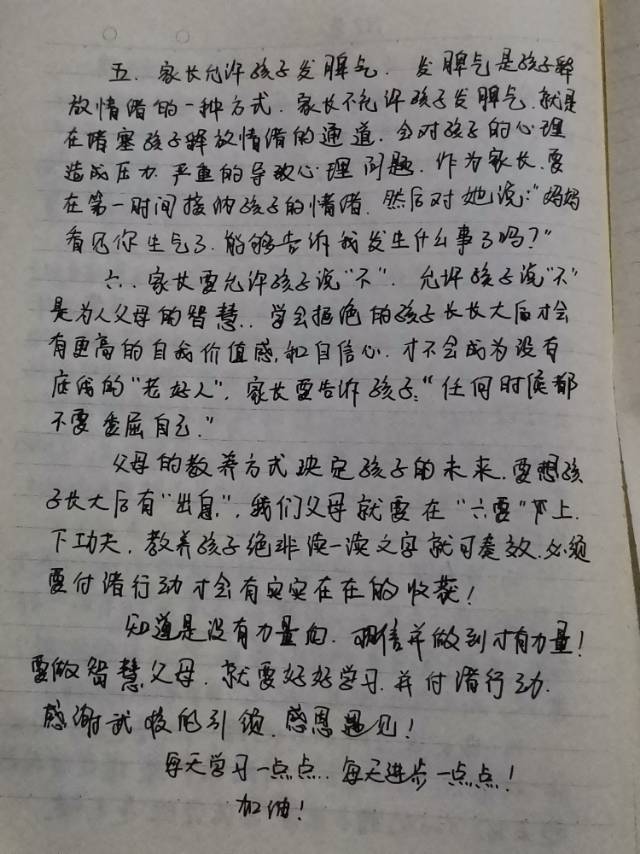 五、家长允许孩子发脾气. 发脾气是孩子释
放情绪的一种方式. 家长不允许孩子发脾气. 就是
在堵塞孩子释放情绪的通道. 会对孩子的心理
造成压力. 严重的导致心理问题. 作为家长. 要
在第一时间接纳孩子的情绪. 然后对她说:“妈妈
看见你生气了. 能够告诉我发生什么事了吗?”
六、家长要允许孩子说“不”. 允许孩子说“不”
是为人父母的智慧. 学会拒绝的孩子长长大后才会
有更高的自我价值感,和自信心. 才不会成为没有
底线的“老好人”. 家长要告诉孩子:“任何时候都
不要委屈自己.”
父母的教养方式决定孩子的未来. 要想孩
子长大后有“出息”. 我们父母就要在“六要”上.
下功夫. 教养孩子绝非读一读文字就可奏效. 必须
要付诸行动才会有实实在在的收获!
知道是没有力量的. 相信并做到才有力量!
要做智慧父母. 就要好好学习. 并付诸行动.
感谢武校的引领. 感恩遇见!
每天学习一点点.. 每天进步一点点!
加油!